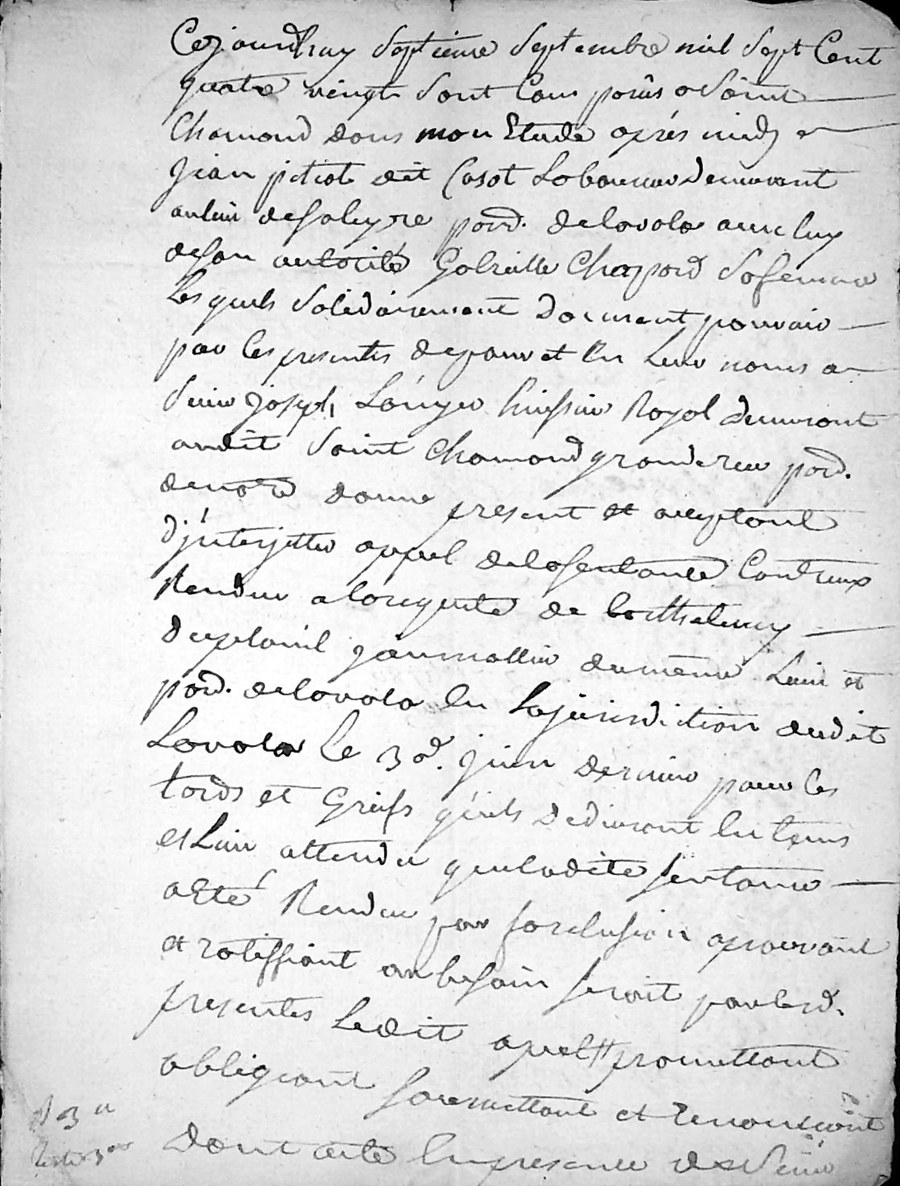 Cejourdhuy Septieme Septembre mil Sept Cent
quatre vingt Sont Comparus a Saint
Chamond dans mon Etude après midy
Jean pitiot dit Casot Laboureur Demeurant
au lieu de paroisse de lavala avec luy
de son autorité Gabrielle Chappard Sa femme
Lesquels Solidairement Donnent pouvoir
par les presentes de pour et En Leur noms a
Sieur Joseph Huissier Royal demeurant
audit Saint Chamond grande rue
present et acceptant
D'interjetter appel de la Sentance Contreux
Rendue a la requete de barthelemy
du même Lieu et
de lavala En la jurisdiction dudit
Lavala Le 30e. juin dernier pour les
tords et Griefs quils Deduiront En tems
et Lieu attendu que ladite Sentance
a Eté Rendue par forclusion aprouvant
et ratiffiant au besoin Seroit par lesd.
presentes Ledit apel promettant
obligeant Soumettant et Renonceant
Dont acte En presence de Sieur